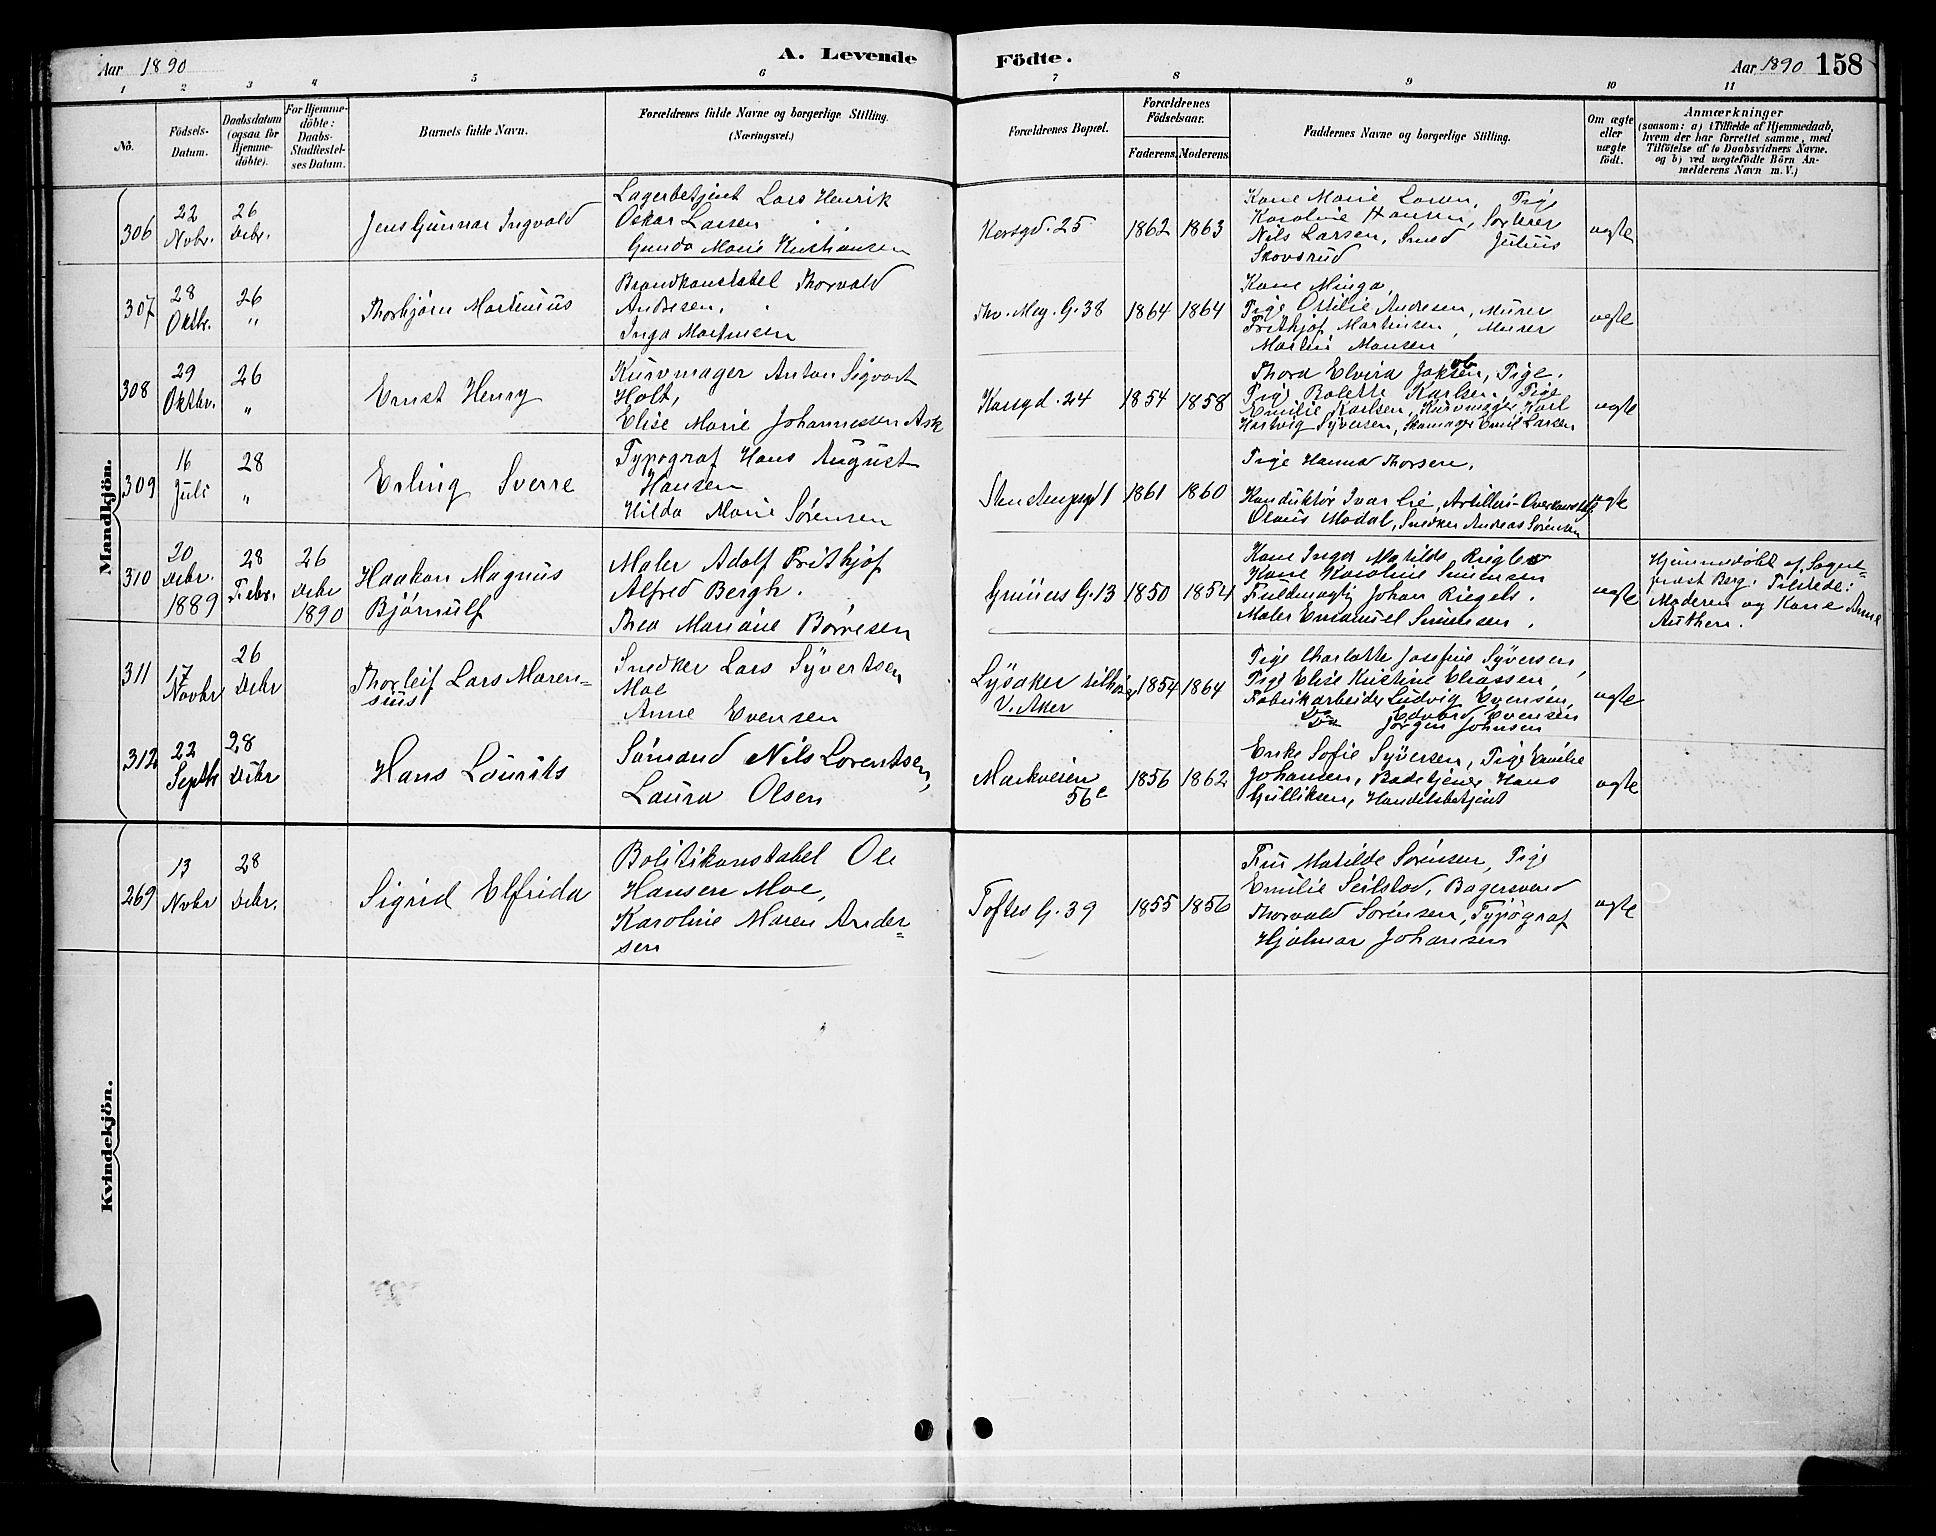 Aar 1890
A. Levende Födte.
Aar 1890 158
1 2 3 4 5 6 7 8 9 10 11
No.
Födsels-Datum.
Daabsdatum (ogsaa for Hjemmedöbte).
For Hjemmedöbte: Daabs-Stadfestelses Datum.
Barnets fulde Navn.
Forældrenes fulde Navne og borgerlige Stilling.
(Næringsvei.)
Forældrenes Bopæl.
Forældrenes Fødselsaar.
Faderens. Moderens.
Faddernes Navne og borgerlige Stilling.
Om ægte eller uægte födt.
Anmærkninger
(saasom: a) i Tilfælde af Hjemmedaab,
hvem der har forrettet samme, med
Tilföielse af to Daabsvidners Navne.
og b) ved uægtefödte Börn Anmelderens Navn m. V.)
Mandkjön.
306
22 Novbr.
26 Debr.
Jens Gunnar Ingvald
Lagerbetjent Lars Henrik
Oskar Larsen
Gunda Marie Kristiansen
Korsgd. 25
1862 1863
Kone Marie Larsen, Pige
Karoline Hansen, Sorterer
Nils Larsen, Smed Julius
Skovsrud
ægte
307
28 Oktbr.
26 "
Thorbjørn Martinius
Brandkonstabel Thorvald
Andresen,
Inga Martinsen
Thv. Mey. G. 38
1864 1864
Kone Minga,
Pige Otilie Andresen, Murer
Frithjof Martinsen, Murer
Martin Monsen
ægte
308
29 Oktbr.
26 "
Ernst Henry
Kurvmager Anton Sigvart
Holt,
Elise Marie Johannessen Ask
Korsgd. 24
1854 1858
Thora Elvira Jakobsen, Pige.
Pige Bolette Karlsen, Pige
Emilie Karlsen, Kurvmager Karl
Hartvig Syversen, Skomager Emil Larsen
ægte
309
16 Juli
28 "
Erling Sverre
Typograf Hans August
Hansen
Hilda Marie Sørensen
1861 1860
Pige Hanna Thorsen,
Konduktør Ivar Lie, Artilleri-Overkonstabel
Olaus Modal, Snedker Andreas Sørensen
ægte
310
20 Debr. 1889
28 Febr.
26 Debr 1890
Haakon Magnus
Bjørnulf
Maler Adolf Frithjof
Alfred Bergh.
Thea Mariane Børresen
Grüners G. 13
1850 1854
Kone Inga Matilde Rigles
Kone Karoline Simensen
Fuldmægtig Johan Riegels.
Maler Emanuel Simensen.
ægte
Hjemmedøbt af Sogne-
prest Berg. Tilstede:
Moderen og Kone Anne
Anthere.
311
17 Novbr
26 Debr
Thorleif Lars Maren-
sius
Snedker Lars Syvertsen
Moe
Anne Evensen
Lysaker tilhører
V. Aker
1854 1864
Pige Charlotte Josefine Syversen,
Pige Elise Kristine Eliassen,
Fabrikarbeider Ludvig Evensen,
Do Edvard Evensen
Do Jørgen Johnsen
ægte
312
22 Septb
28 Debr
Hans Laurits
Sömand Nils Lorentsen,
Laura Olsen
Markveien
56c
1856 1862
Enke Sofie Syversen, Pige Emilie
Johansen, Badetjener Hans
Gulliksen, Handelsbetjent
ægte
Kvindekjön.
269
13 Novbr
28 Debr.
Sigrid Elfrida
Politikonstabel Ole
Hansen Moe,
Karoline Maren Ander-
sen
Toftes G. 39
1855 1856
Fru Matilde Sørensen, Pige
Emilie Seilstad, Bagersvend
Thorvald Sörensen, Typograf
Hjalmar Johansen
ægte